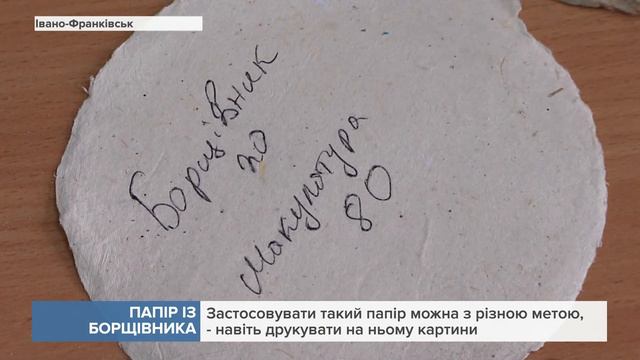 Івано-Франківськ
Борщівник
20
Макулатура
80
ПАПІР ІЗ
БОРЩІВНИКА
Застосовувати такий папір можна з різною метою,
- навіть друкувати на ньому картини